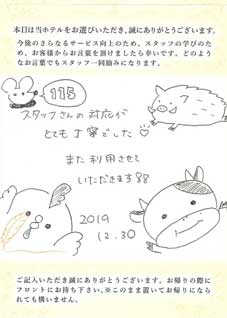 本日は当ホテルをお選びいただき、誠にありがとうございます。
今後のさらなるサービス向上のため、スタッフの学びのため、お客様からお言葉を頂けましたら幸いです。どのようなお言葉でもスタッフ一同励みになります。
118
スタッフさんの対応が
とても丁寧でした♡
また利用させて
いただきます
2019
12.30
ご記入いただき誠にありがとうございます。お帰りの際に
フロントにお持ち下さい。※このまま置いてお帰りになら
れても構いません。